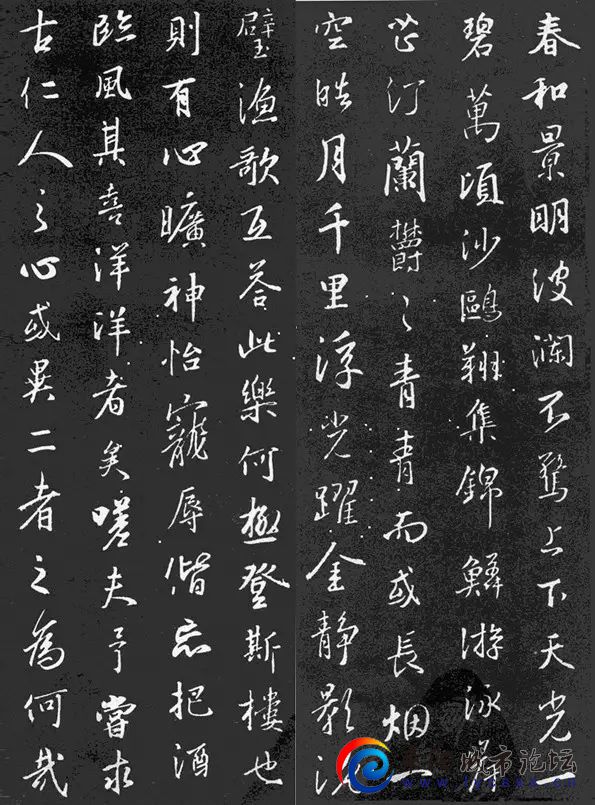 春和景明波瀾不驚上下天光一
碧萬頃沙鷗翔集錦鱗游泳岸
芷汀蘭鬱〻青青而或長烟一
空皓月千里浮光躍金靜影沉
璧漁歌互答此樂何極登斯樓也
則有心曠神怡寵辱偕忘把酒
臨風其喜洋洋者矣嗟夫予嘗求
古仁人之心或異二者之為何哉
城市论坛